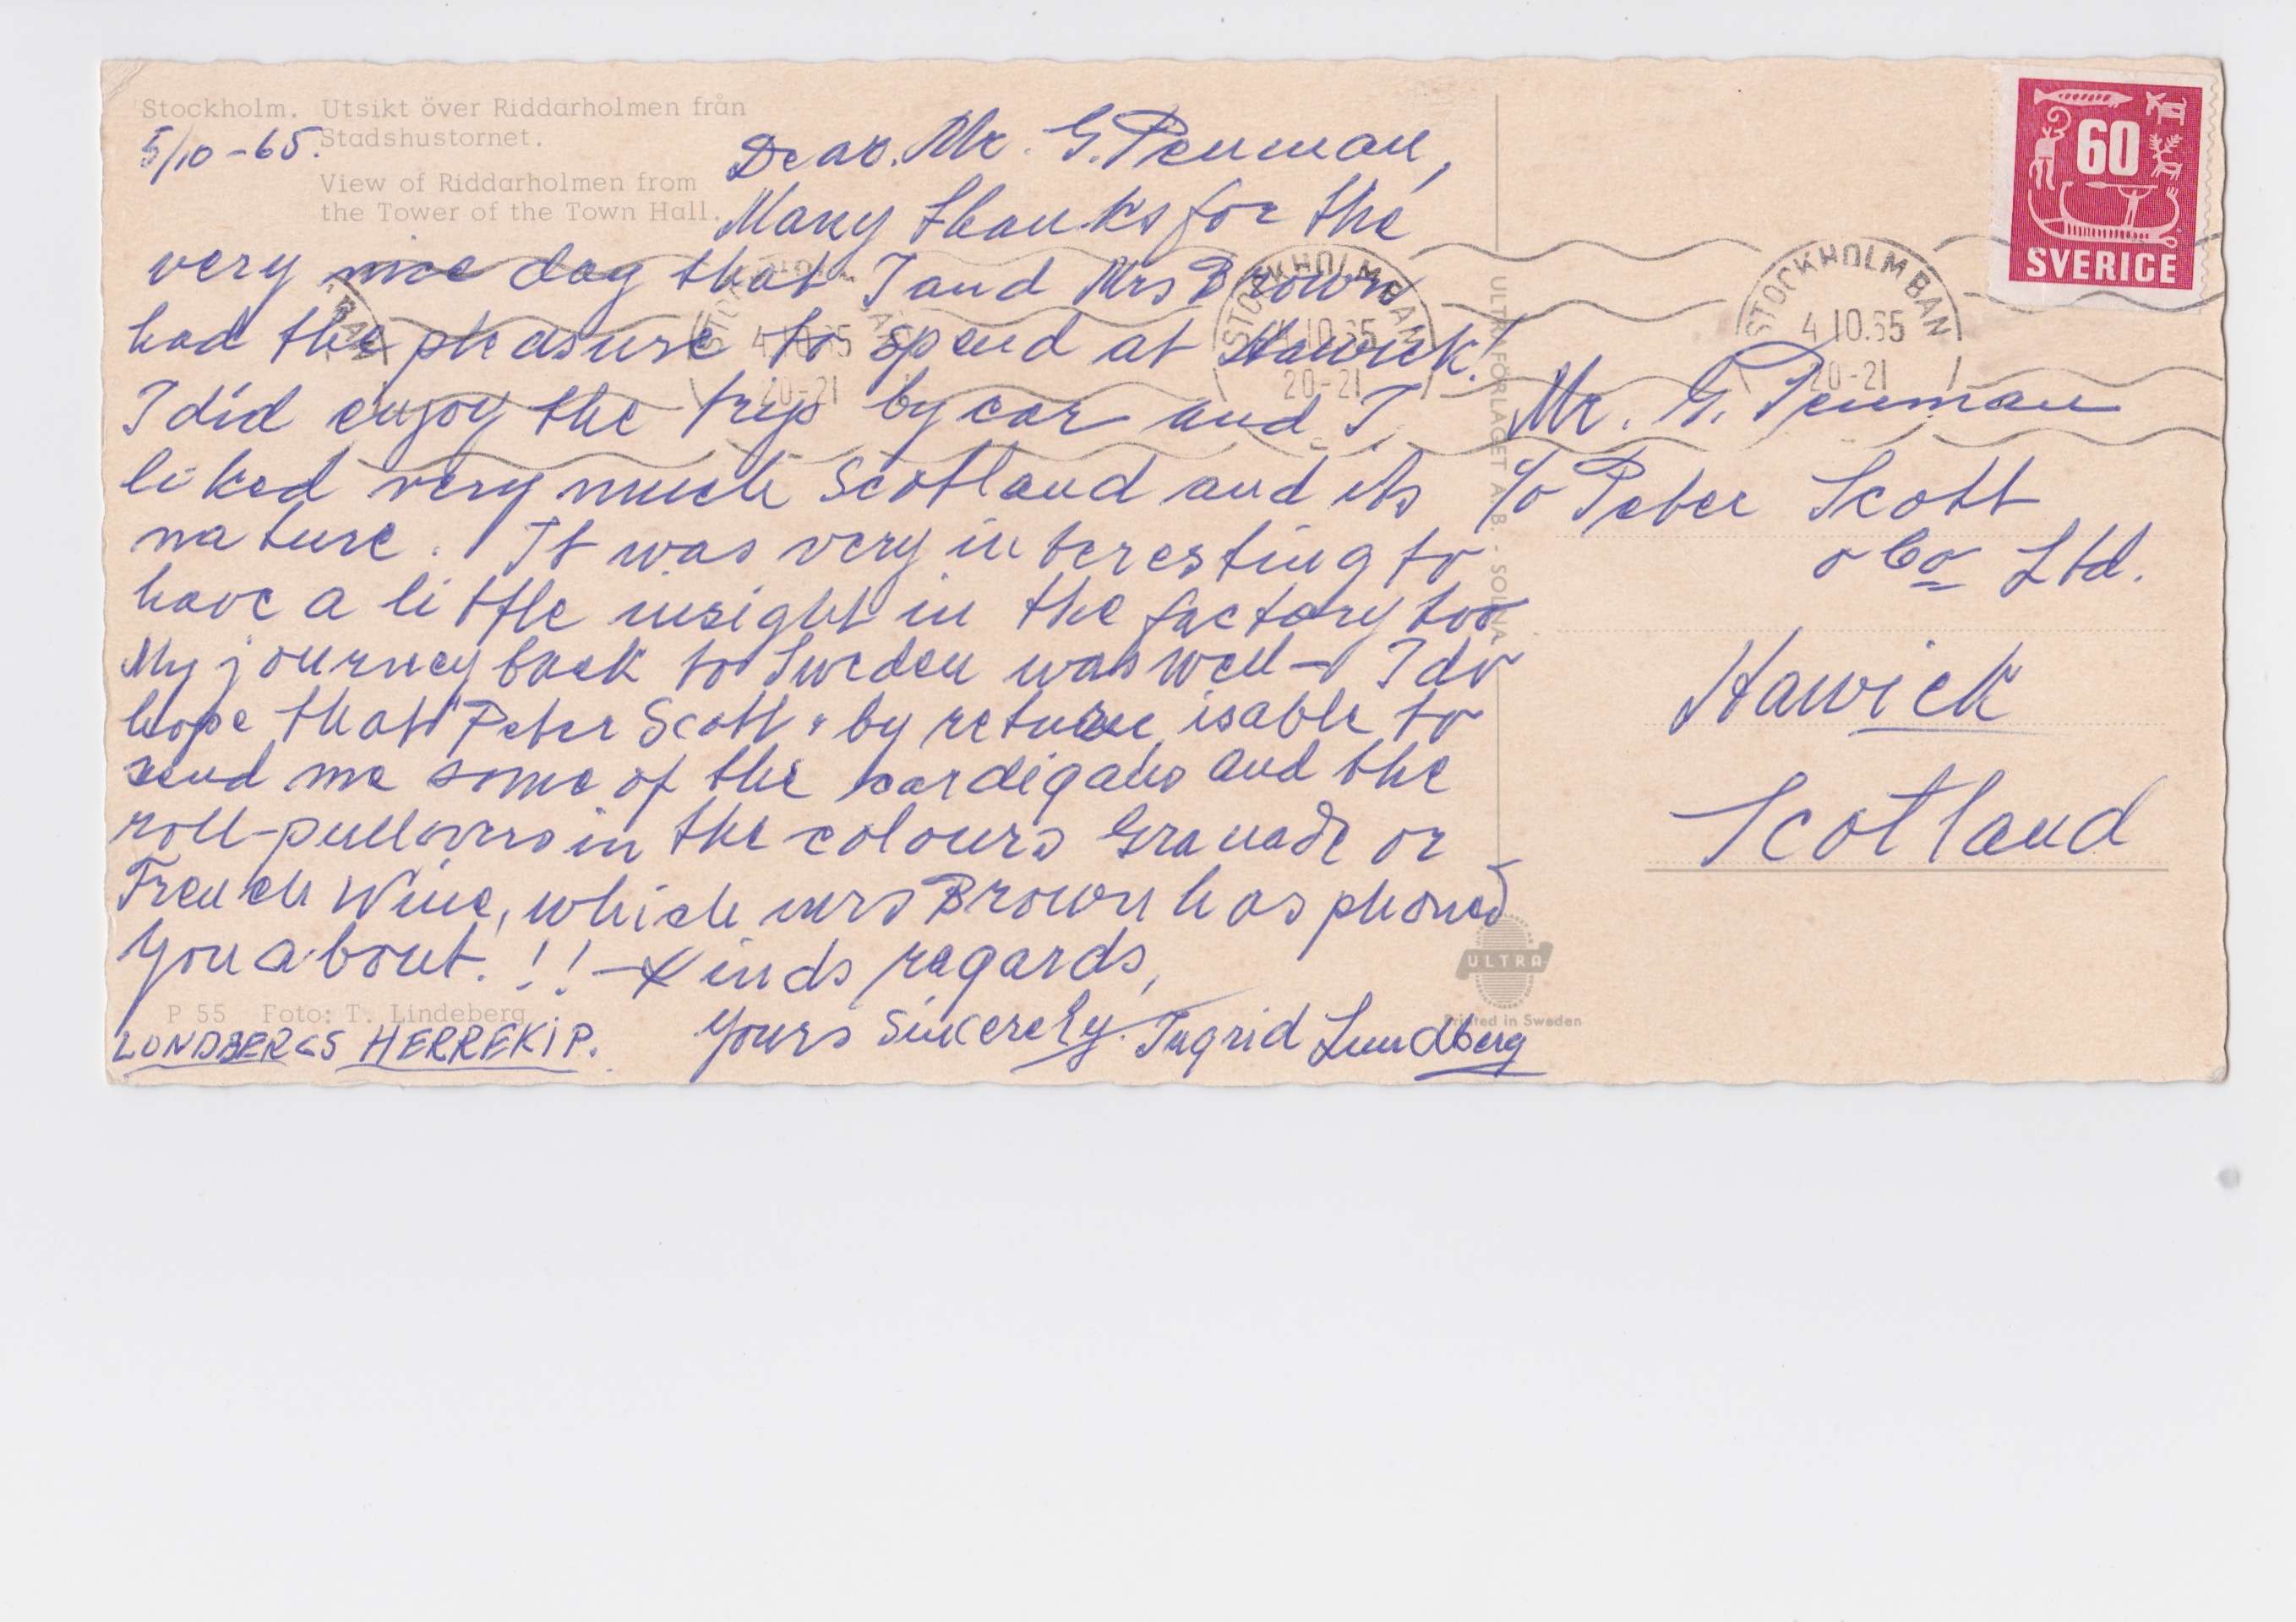 Stockholm. Utsikt över Riddarholmen från
Stadshustornet.
View of Riddarholmen from
the Tower of the Town Hall.
5/10-65.
Dear. Mr. G. Penman,
Many thanks for the
very nice day that I and Mrs Brown
had the pleasure to spend at Hawick!
I did enjoy the trip by car and I
liked very much Scotland and its
nature. It was very interesting to
have a little insight in the factory too
My journey back to Sweden was well - I do
hope that Peter Scott by return is able to
send me some of the cardigans and the
roll-pullovers in the colours Granade or
French Wine, which mrs Brown has phoned
you about.!! - Kinds regards,
Yours Sincerely. Ingrid Lundberg
LUNDBERGS HERREKIP.
P 55 Foto: T. Lindeberg
ULTRAFÖRLAGET A.B. - SOLNA
ULTRA
Printed in Sweden
60
SVERIGE
STOCKHOLM BAN
4.10.65
20-21
STOCKHOLM BAN
4.10.65
20-21
4.10.65
20-21
Mr. G. Penman
c/o Peter Scott
o Co Ltd.
Hawick
Scotland